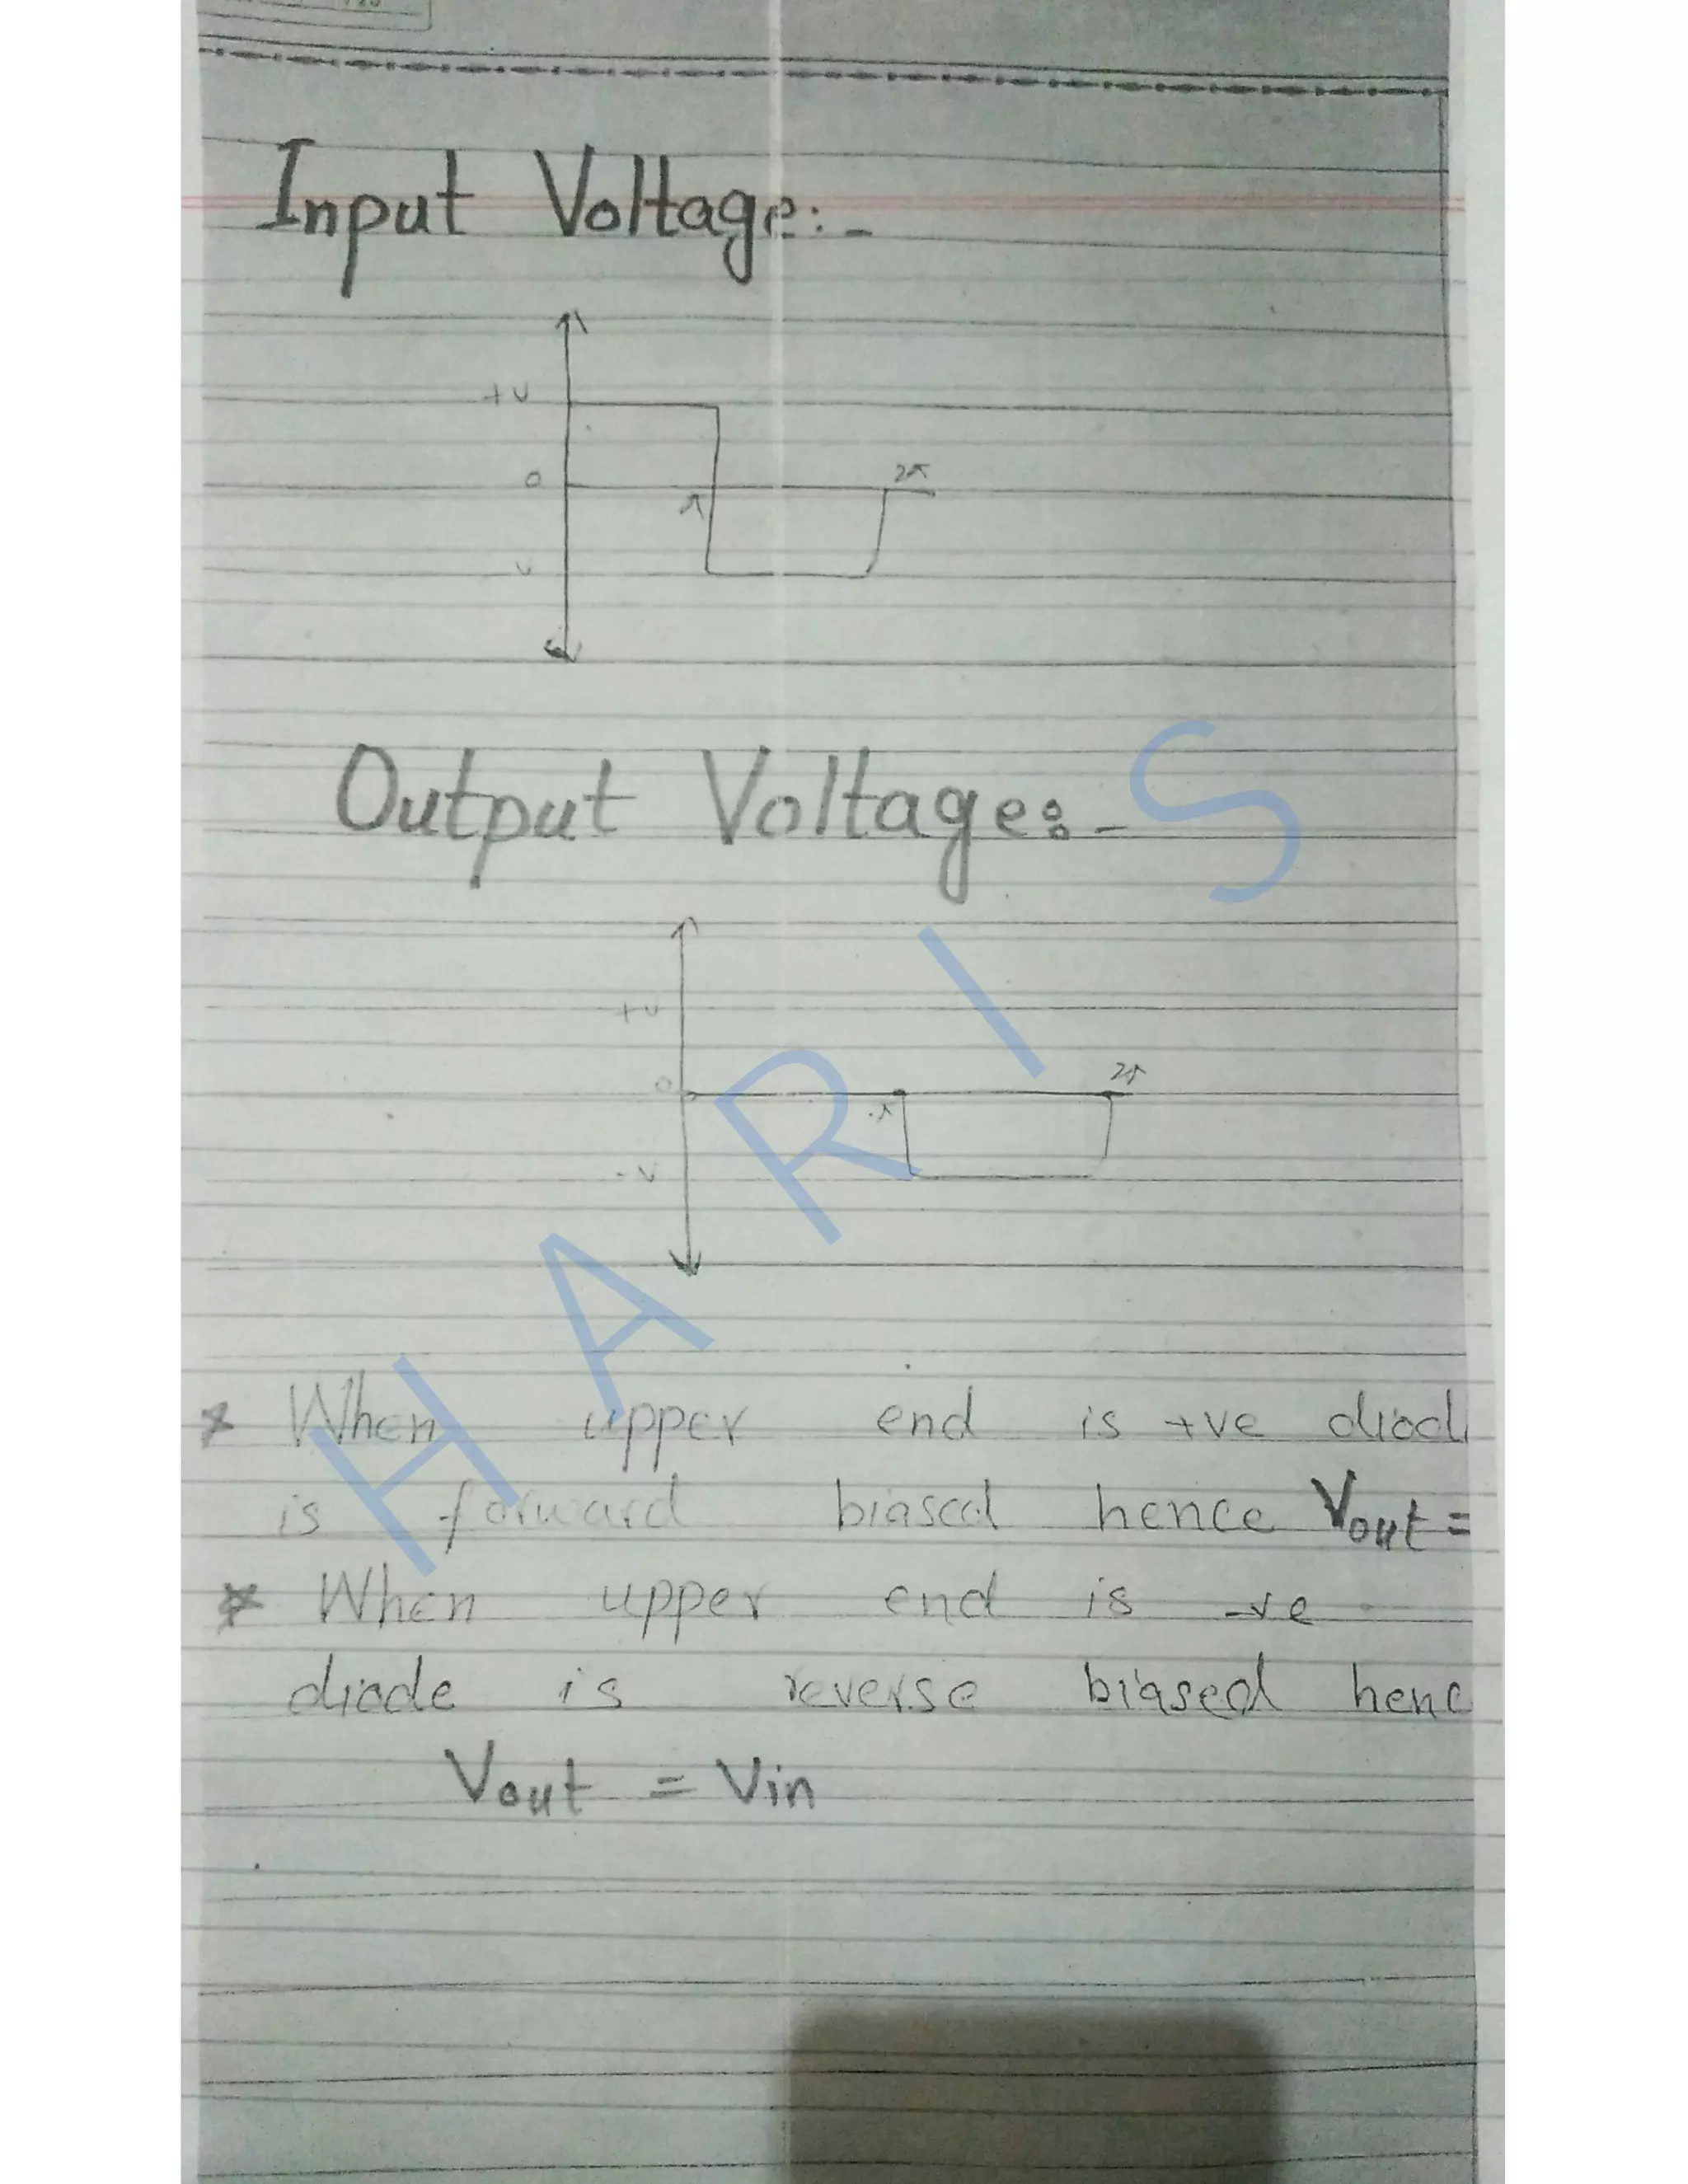 Input Voltage:-
+V
0
π
2π
V
Output Voltage:-
+V
0
π
2π
-V
* When upper end is +ve diod
is forward biased hence Vout =
* When upper end is -ve
diode is reverse biased henc
Vout = Vin
HARIS